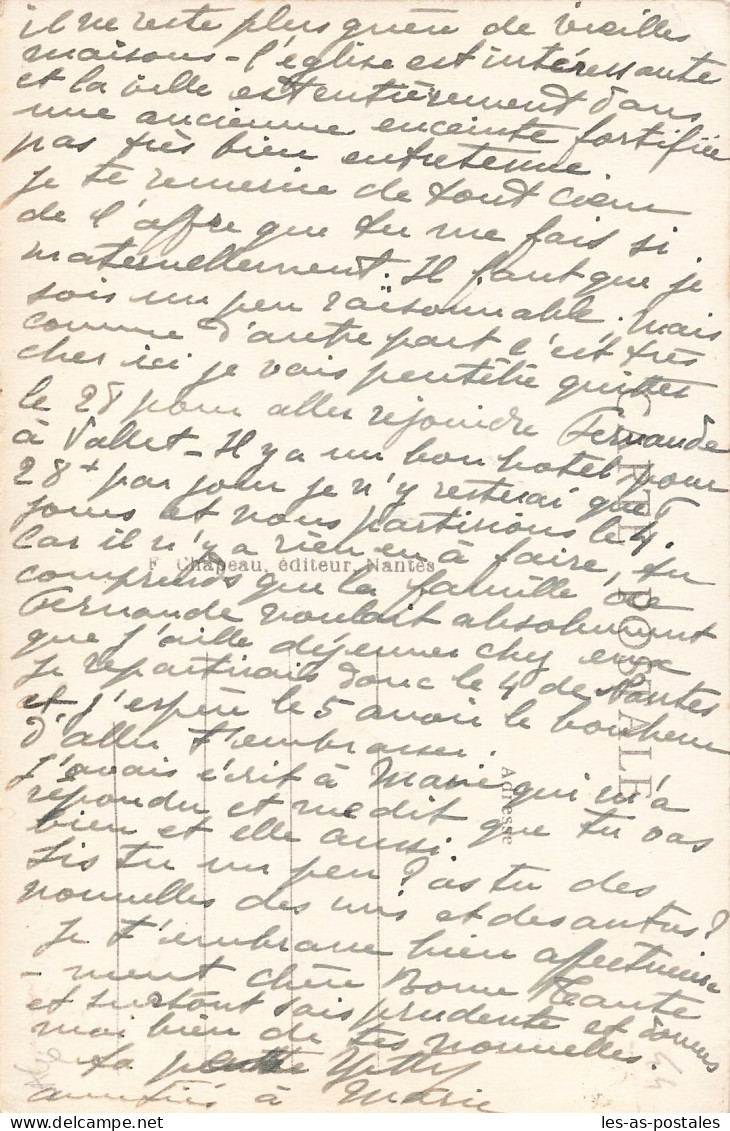 il ne reste plus guère de vieilles
maisons - l'église est intéressante
et la ville est entièrement dans
une ancienne enceinte fortifiée
pas très bien entretenue.
Je te remercie de tout cœur
de l'offre que tu me fais si
maternellement. Il faut que je
sois un peu raisonnable. Mais
comme d'autre part c'est très
cher ici je vais peutêtre quitter
le 28 pour aller rejoindre Fernande
à Vallet - Il y a un bon hotel pour
28 + par jour je n'y resterai que
jours et nous partirions le 4.
Car il n'y a rien en à faire, tu
comprends que la famille de
Fernande voulait absolument
que j'aille déjeuner chez eux
je repartirais donc le 4 de Nantes
et j'espère le 5 avoir le bonheur
d'aller t'embrasser.
J'avais écrit à Marie qui m'a
répondu et me dit que tu vas
bien et elle aussi.
Lis tu un peu ? as tu des
nouvelles des uns et des autres ?
Je t'embrasse bien affectueuse
- ment chère Bonne Tante
et surtout sois prudente et donnes
moi bien de tes nouvelles.
Ta petite
amitiés à Marie
CARTE POSTALE
F. Chapeau, éditeur, Nantes
Adresse
les-as-postales.com